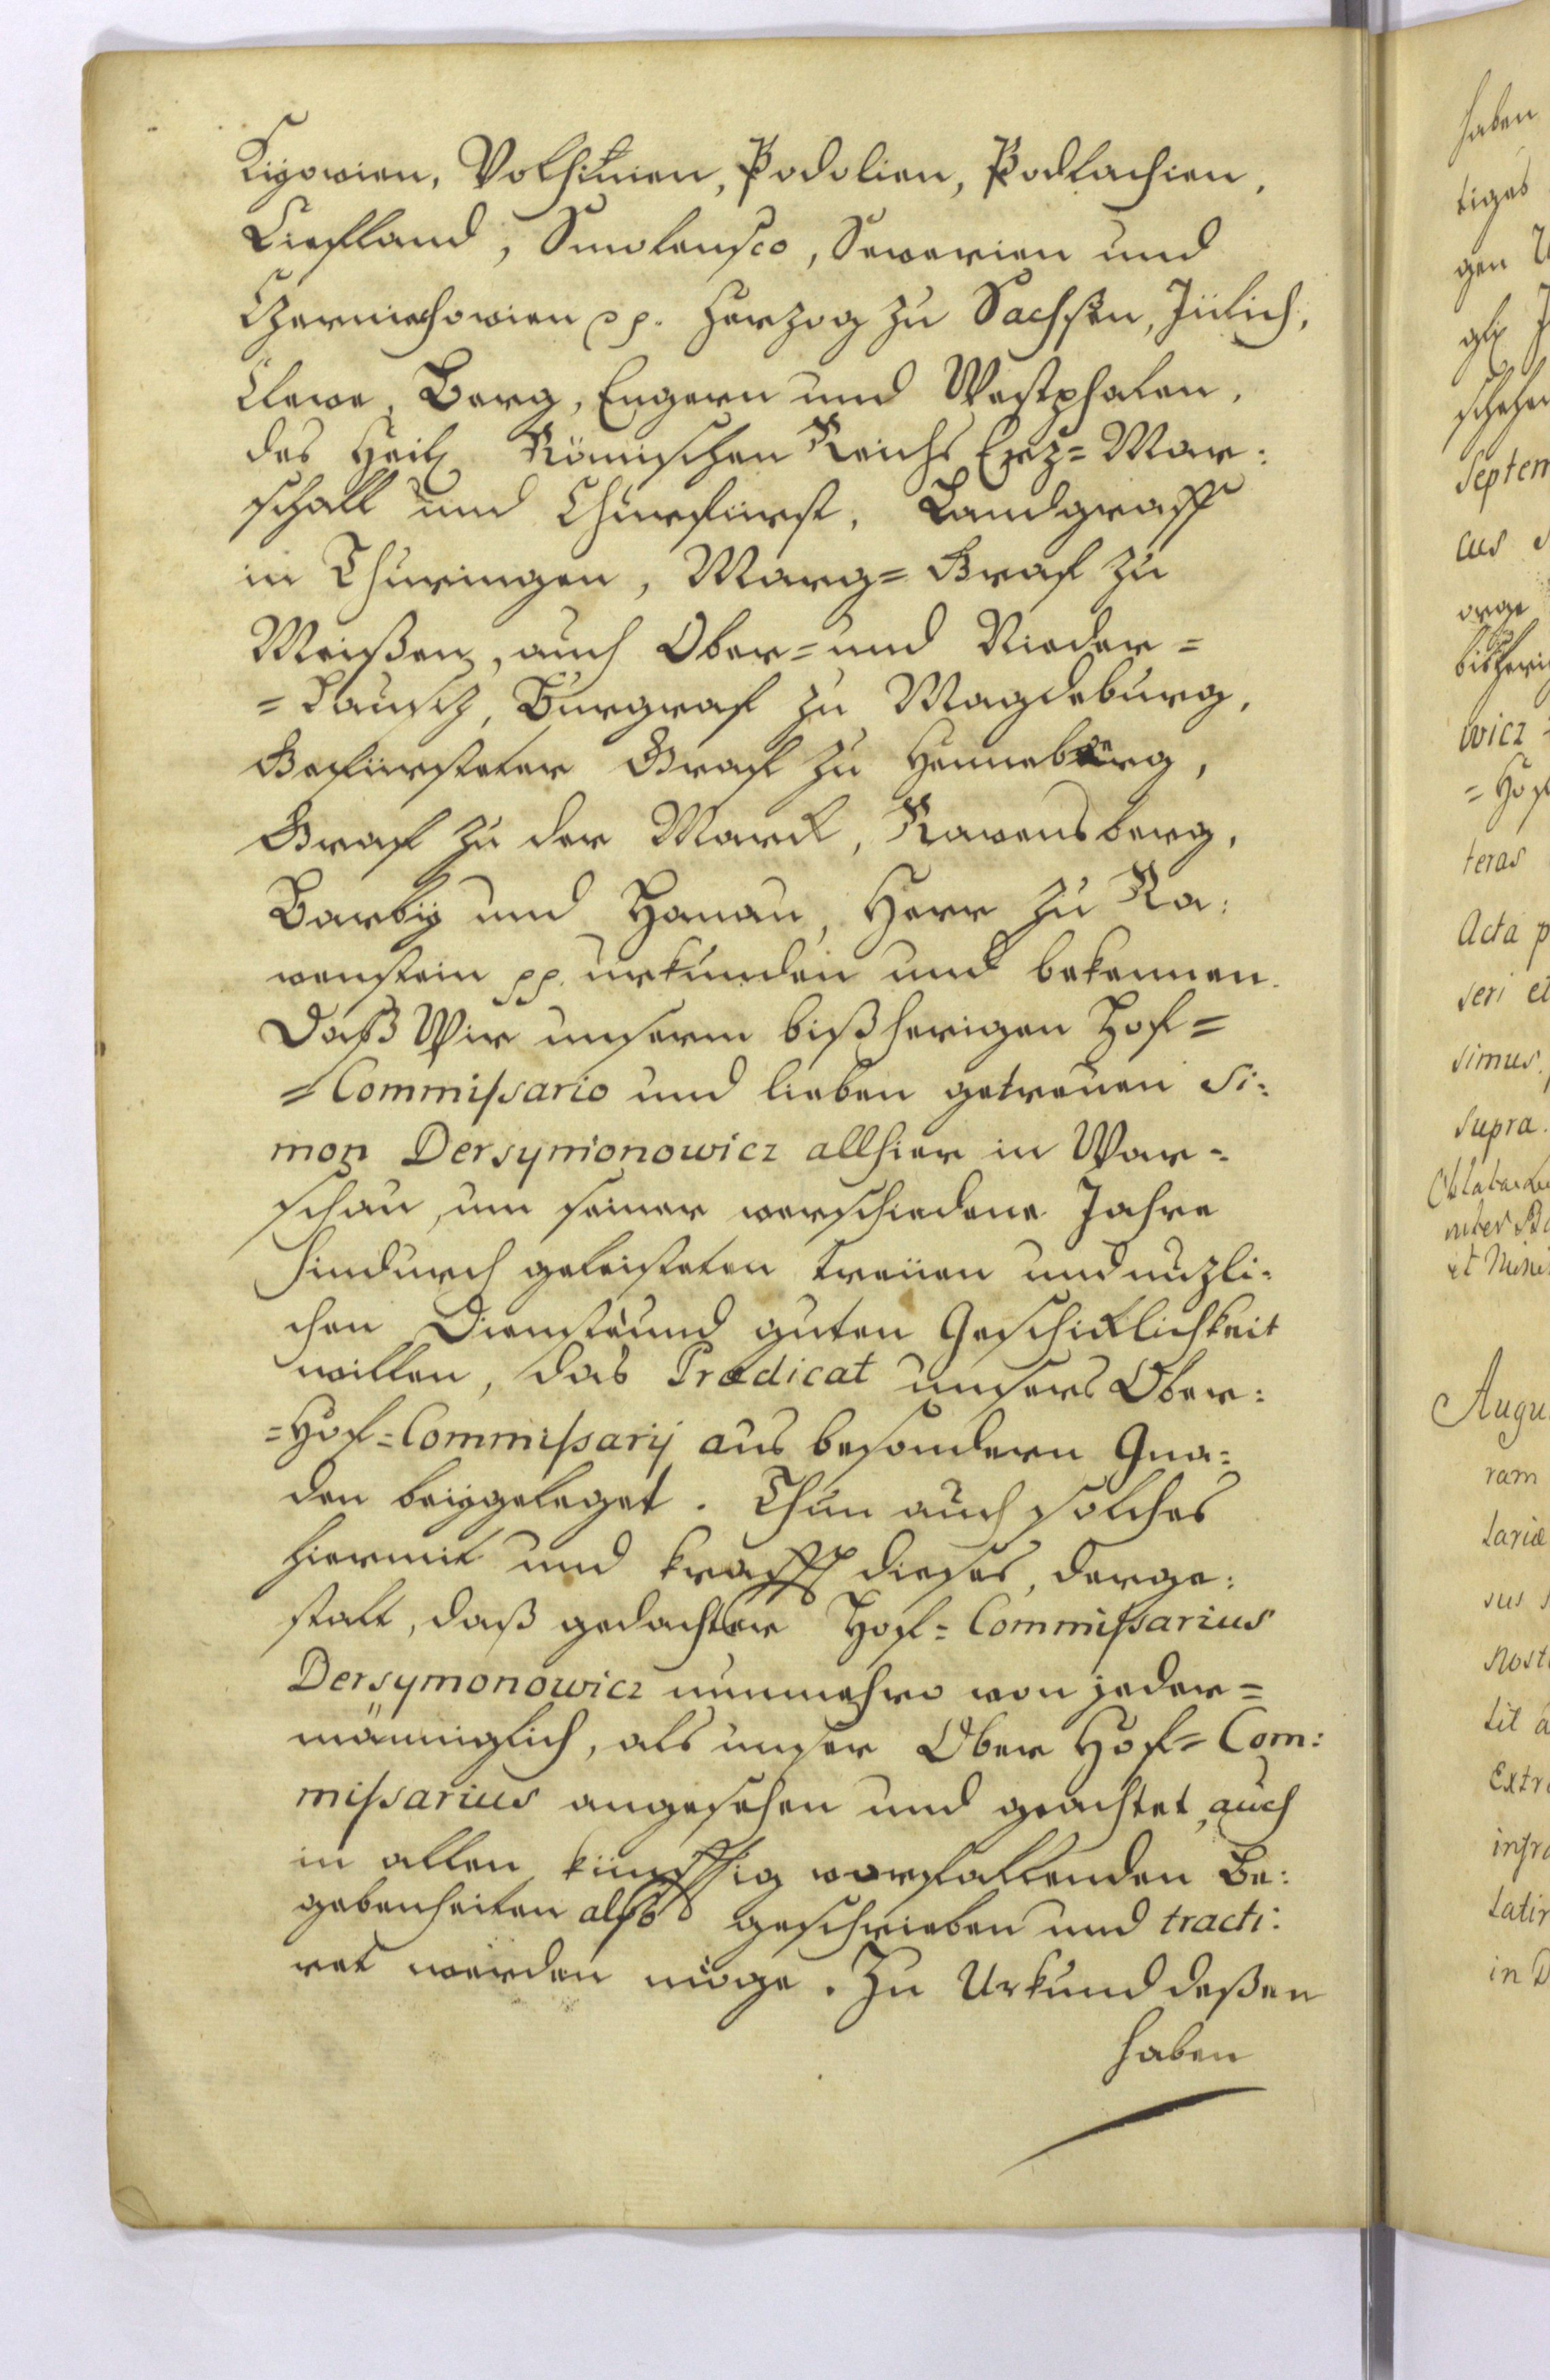 Kijowien, Volhinien, Podolien, Podlachien,
Liefland, Smolensco, Severien und
Czerniechowien pp. Herzog zu Sachsen, Jülich,
Cleve, Berg, Engern und Westphalen,
des Heil. Römischen Reichs Erz=Mar:
schall und Churfürst, Landgraff
in Thuringen, Marg=Graf zu
Meißen, auch Ober= und Nieder=
=Lausiz, Burgraf zu Magdeburg,
Gefürsteter Graf zu Henneberg,
Graf zu der Marck, Ravensberg,
Barby und Hanau, Herr zu Ra:
venstein pp. urkunden und bekennen.
Daß Wir unserm bißherigen Hof=
=Commissario und lieben getreuen Si:
mon Dersymonowicz allhier in War=
schau, um seiner verschiedene Jahre
hindurch geleisteten treüen und nuzli:
chen Dienste und guten Geschicklichkeit
willen, das Prædicat unsers Ober:
=Hof=Commissarij aus besondern Gna:
den beygeleget. Thun auch solches
hiermit und krafft dieses, derge:
stalt, daß gedachter Hof=Commissarius
Dersymonowicz nunmehro von jeder=
männiglich, als unser Ober Hof=Com:
missarius angesehen und geachtet, auch
in allen künfftig vorfallenden Be:
gebenheiten also geschrieben und tracti:
ret werden möge. Zu Urkund deßen
haben
haben
tiges
gen
Septem
cus
wicz
=Hof
teras
Acta p
seri et
simus,
supra.
Augu
ram
lariæ
sus
nost
tit a
Extra
infra
Latin
in D